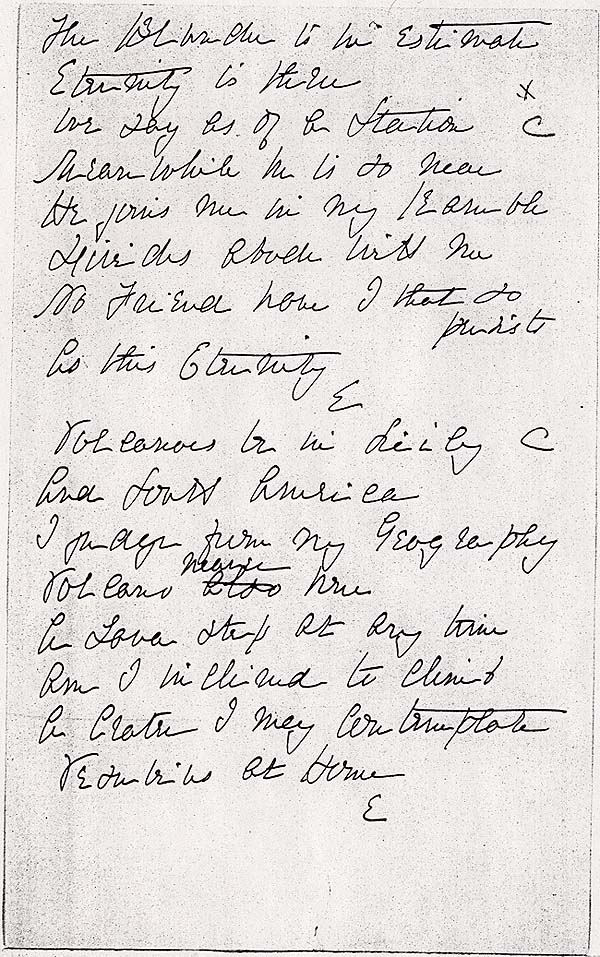 The Blunder is in Estimate
Eternity is there
We say as of a Station
x
C
Meanwhile he is so near
He joins me in my Ramble
Divides abode with me
No Friend have I that so
persists
As this Eternity
E
Volcanoes be in Sicily C
And South America
I judge from my Geography
nearer
Volcano also here
A Lava step at any time
Am I inclined to climb
A Crater I may Contemplate
Vesuvius at Home
E